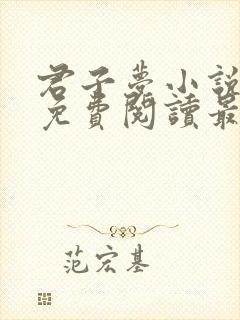 君子夢小說
免費閱讀最
范宏基